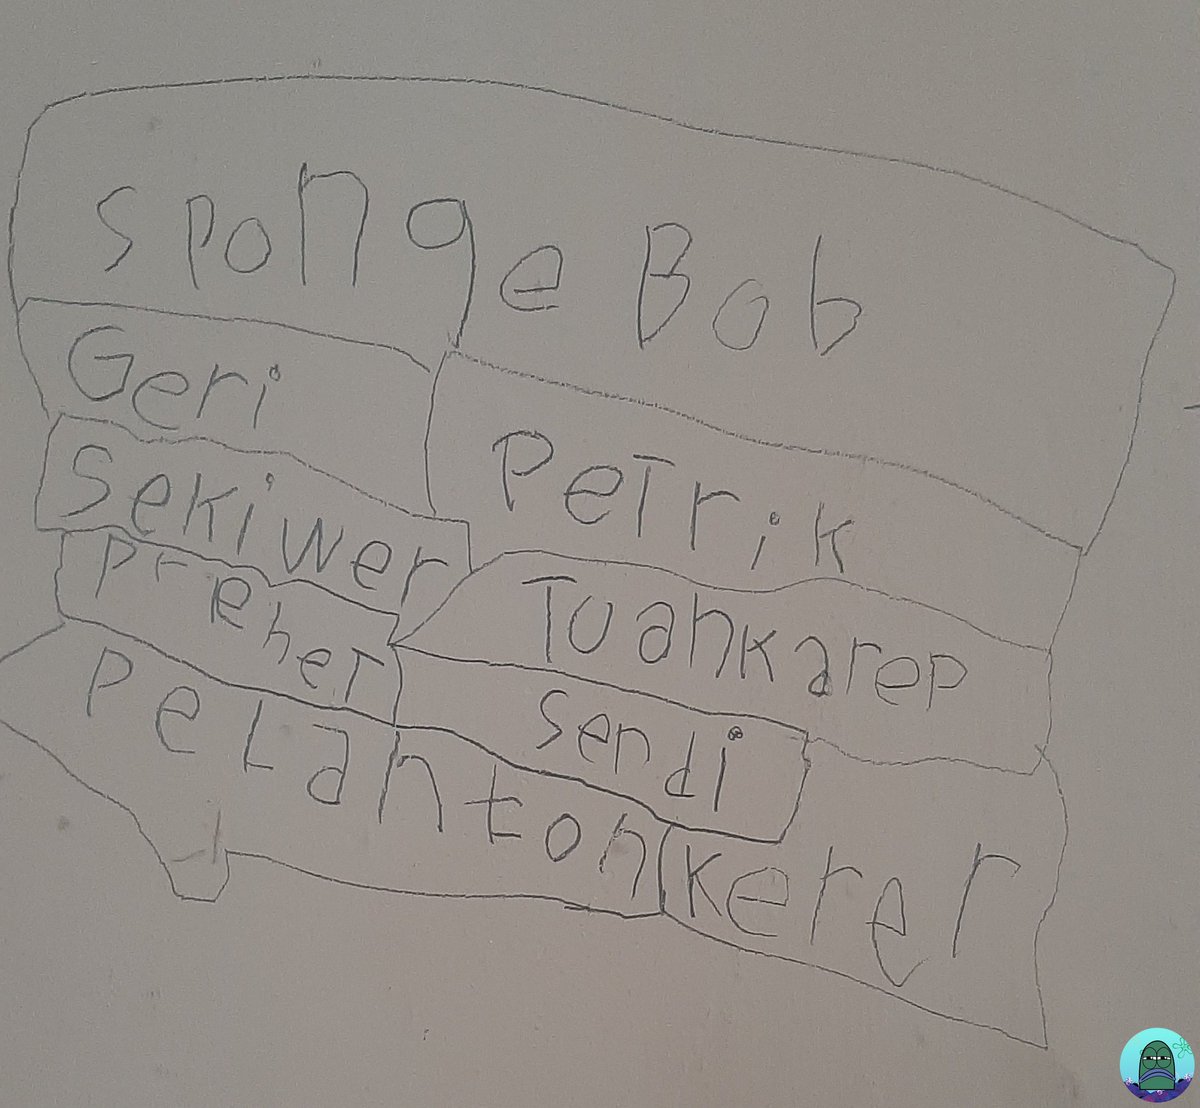 spongeBob
Geri
PeTrik
Sekiwer
Preher
Tuankarep
Sendi
PeLanton
kerer